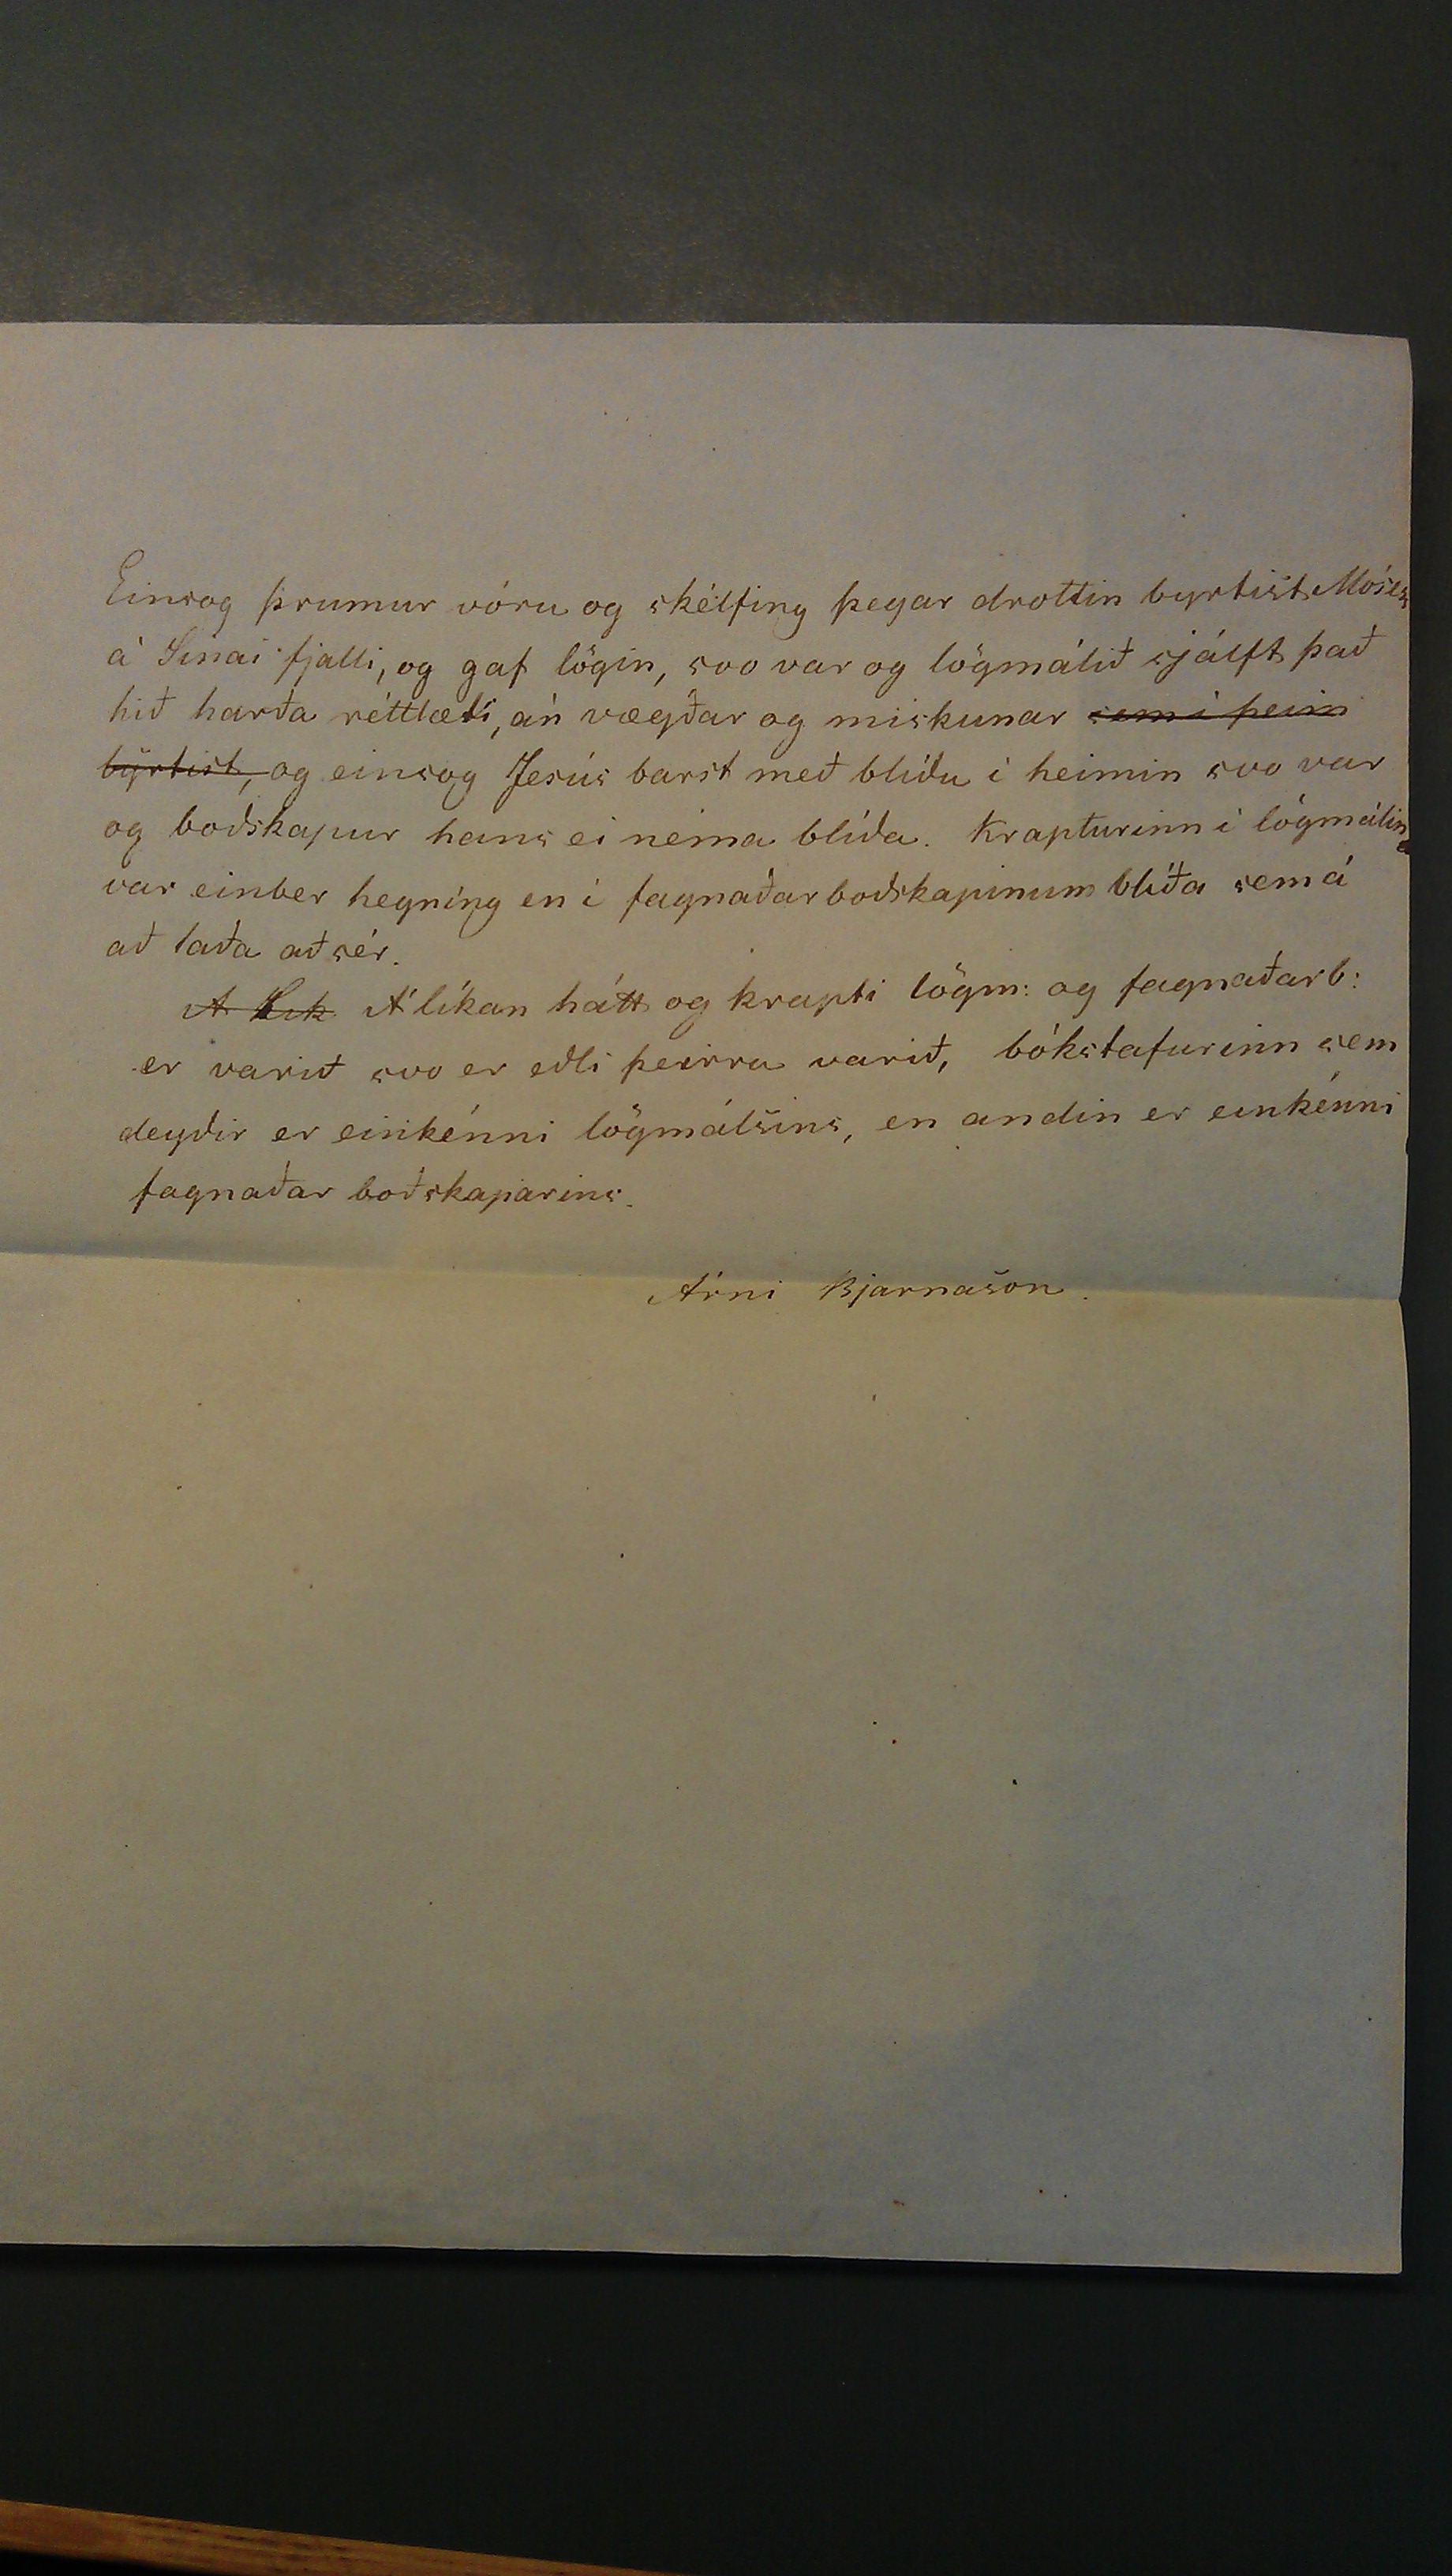 Einsog þrumur vóru og skélfing þegar drottin byrtist Móses
á Sinai fjalli, og gaf lögin, svo var og lögmálið sjálft það
hið harða réttlæti, án vægðar og miskunar sem í þeim
byrtist, og einsog Jesús barst með blíðu í heimin svo var
og boðskapur hans ei nema blíða. Krapturinn í lögmálinu
var einber hegníng en í fagnaðarboðskapinum blíða sem á
að laða að sér.
A Lík Á líkan hátt og krapti lögm: og fagnaðarb:
er varið svo er eðli þeirra varið, bókstafurinn sem
deyðir er einkénni lögmálsins, en andin er einkénni
fagnaðar boðskaparins.
Árni Bjarnason.